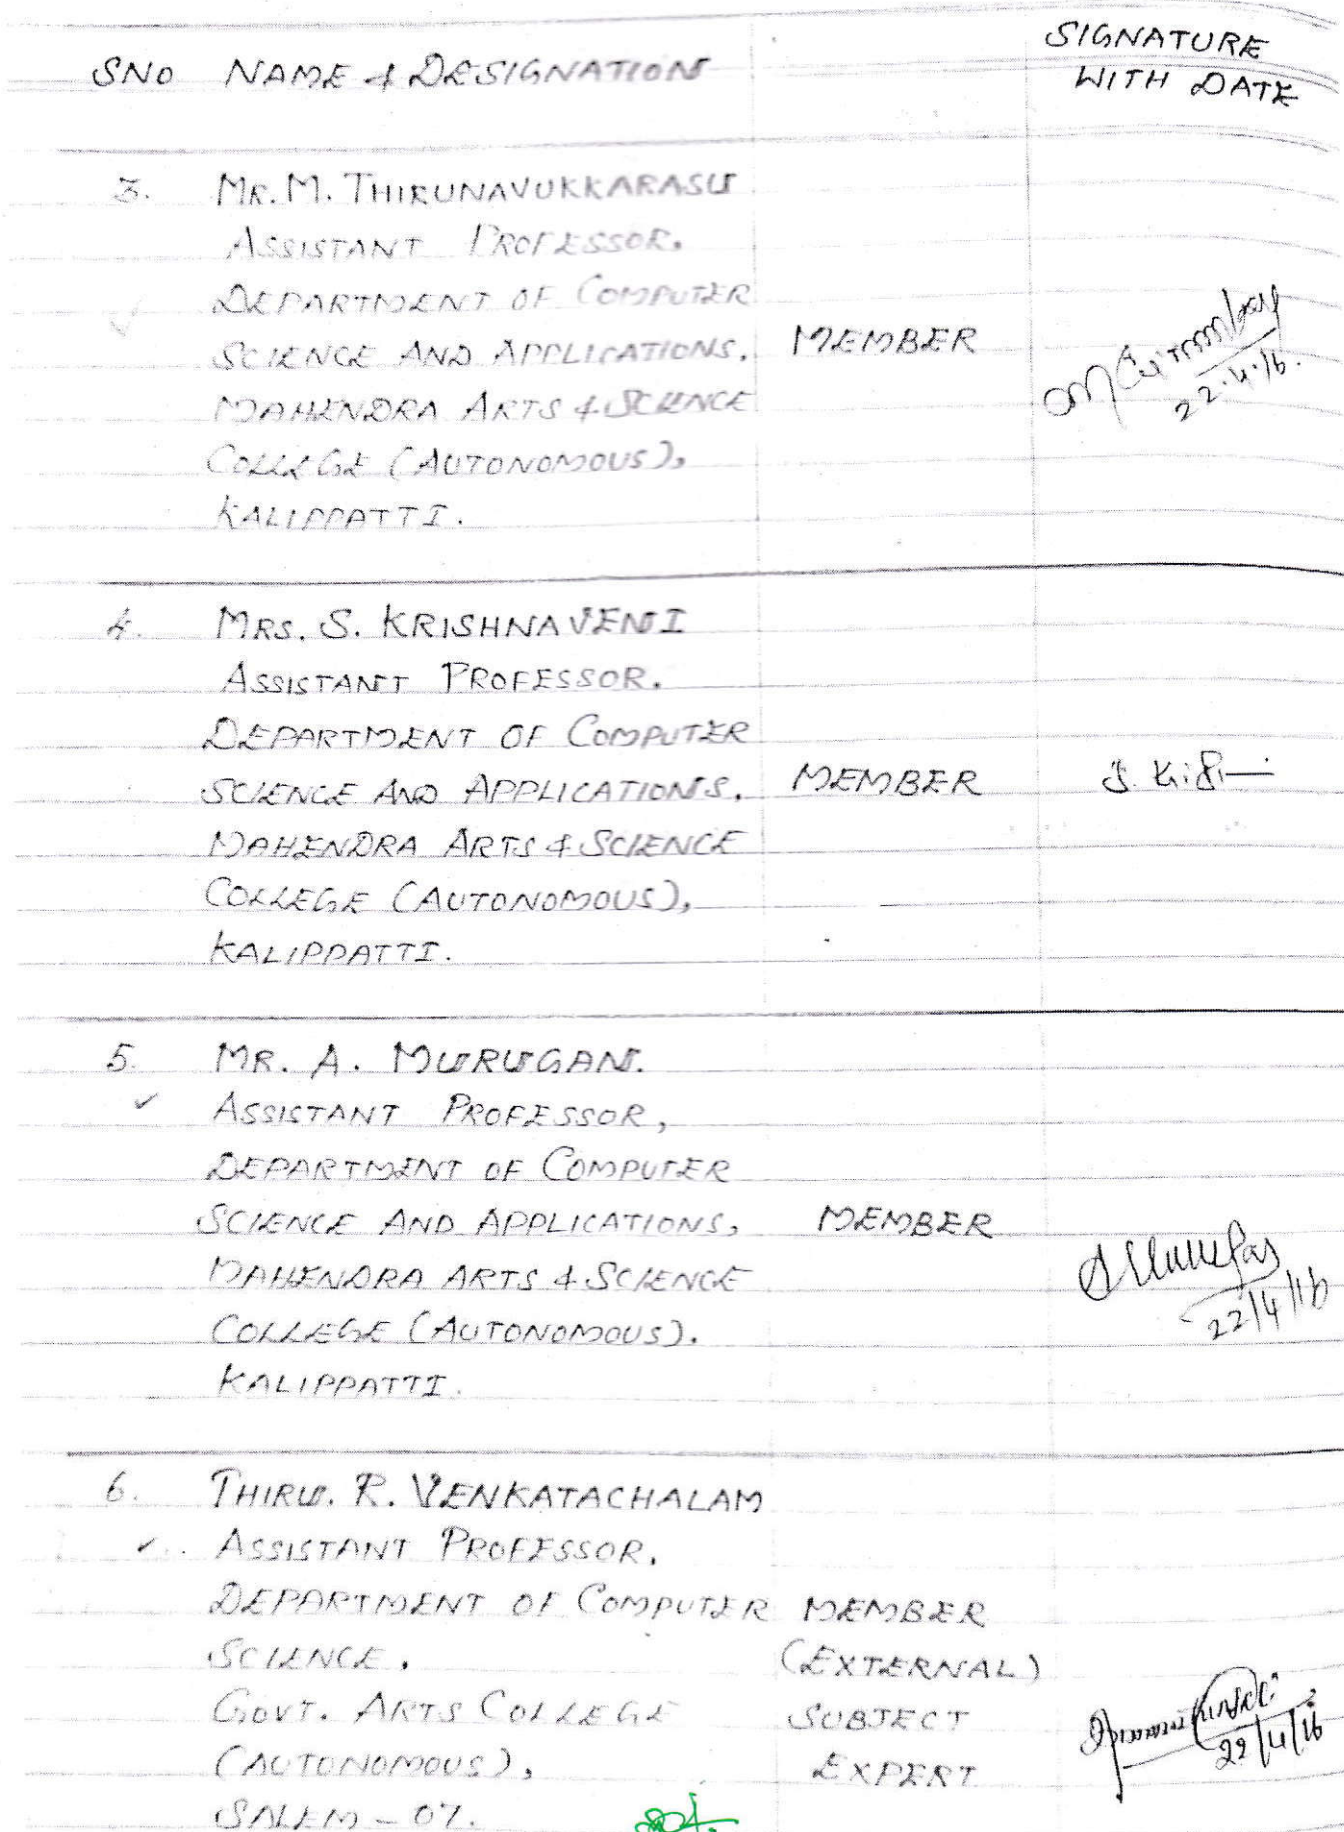 SNO NAME & DESIGNATION
SIGNATURE
WITH DATE
3. MR. M. THIRUNAVUKKARASU
ASSISTANT PROFESSOR.
DEPARTMENT OF COMPUTER
SCIENCE AND APPLICATIONS. MEMBER
MAHENDRA ARTS & SCIENCE
22.4.16.
COLLEGE (AUTONOMOUS),
KALIPPATTI.
4. MRS. S. KRISHNAVENI
ASSISTANT PROFESSOR.
DEPARTMENT OF COMPUTER
SCIENCE AND APPLICATIONS. MEMBER S.
MAHENDRA ARTS & SCIENCE
COLLEGE (AUTONOMOUS),
KALIPPATTI.
5. MR. A. MURUGAN.
ASSISTANT PROFESSOR,
DEPARTMENT OF COMPUTER
SCIENCE AND APPLICATIONS, MEMBER
MAHENDRA ARTS & SCIENCE
COLLEGE (AUTONOMOUS). 22/4/16
KALIPPATTI.
6. THIRU. R. VENKATACHALAM
ASSISTANT PROFESSOR.
DEPARTMENT OF COMPUTER MEMBER
SCIENCE. (EXTERNAL)
GOVT. ARTS COLLEGE SUBJECT
(AUTONOMOUS), EXPERT 22/4/16
SALEM - 07.